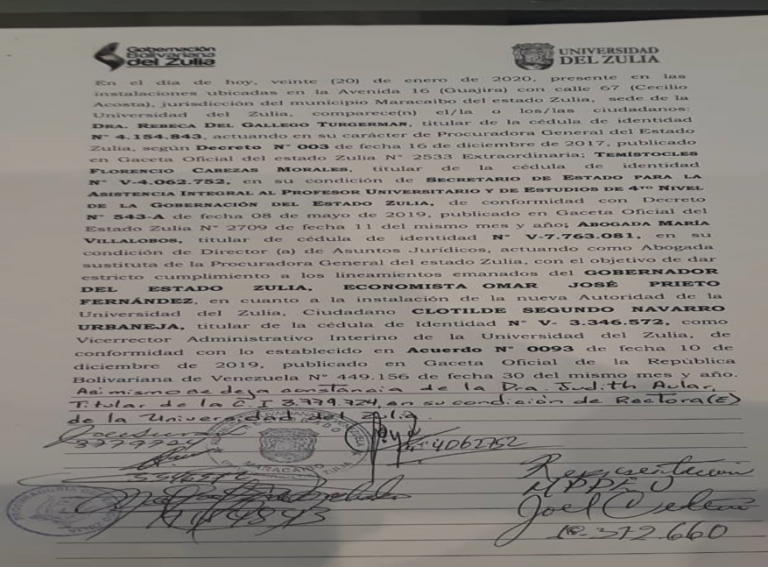 Gobernación
Bolivariana
del Zulia
UNIVERSIDAD
DEL ZULIA
En el día de hoy, veinte (20) de enero de 2020, presente en las
instalaciones ubicadas en la Avenida 16 (Guajira) con calle 67 (Cecilio
Acosta), jurisdicción del municipio Maracaibo del estado Zulia, sede de la
Universidad del Zulia, comparece(n) el/la o los/las ciudadanos:
DRA. REBECA DEL GALLEGO TURGERMAR, titular de la cédula de identidad
N° 4.154.843, actuando en su carácter de Procuradora General del Estado
Zulia, según Decreto N° 003 de fecha 16 de diciembre de 2017, publicado
en Gaceta Oficial del estado Zulia N° 2533 Extraordinaria; TEMÍSTOCLES
FLORENCIO CABEZAS MORALES, titular de la cédula de identidad
N° V-4.062.752, en su condición de SECRETARIO DE ESTADO PARA LA
ASISTENCIA INTEGRAL AL PROFESOR UNIVERSITARIO Y DE ESTUDIOS DE 4TO NIVEL
DE LA GOBERNACIÓN DEL ESTADO ZULIA, de conformidad con Decreto
N° 543-A de fecha 08 de mayo de 2019, publicado en Gaceta Oficial del
Estado Zulia N° 2709 de fecha 11 del mismo mes y año; ABOGADA MARÍA
VILLALOBOS, titular de cédula de identidad N° V-7.763.081, en su
condición de Director (a) de Asuntos Jurídicos, actuando como Abogada
sustituta de la Procuradora General del estado Zulia, con el objetivo de dar
estricto cumplimiento a los lineamientos emanados del GOBERNADOR
DEL ESTADO ZULIA, ECONOMISTA OMAR JOSÉ PRIETO
FERNÁNDEZ, en cuanto a la instalación de la nueva Autoridad de la
Universidad del Zulia, Ciudadano CLOTILDE SEGUNDO NAVARRO
URBANEJA, titular de la cédula de Identidad N° V- 3.346.572, como
Vicerrector Administrativo Interino de la Universidad del Zulia, de
conformidad con lo establecido en Acuerdo N° 0093 de fecha 10 de
diciembre de 2019, publicado en Gaceta Oficial de la República
Bolivariana de Venezuela N° 449.156 de fecha 30 del mismo mes y año.
Asimismo se deja constancia de la Dra. Judith Aular,
Titular de la C I 3.779.724, en su condición de Rectora(E)
de la Universidad del Zulia.
3779724
4062752
MARACAIBO
Representación
MPPEU
Joel Cedeño
18.372.660